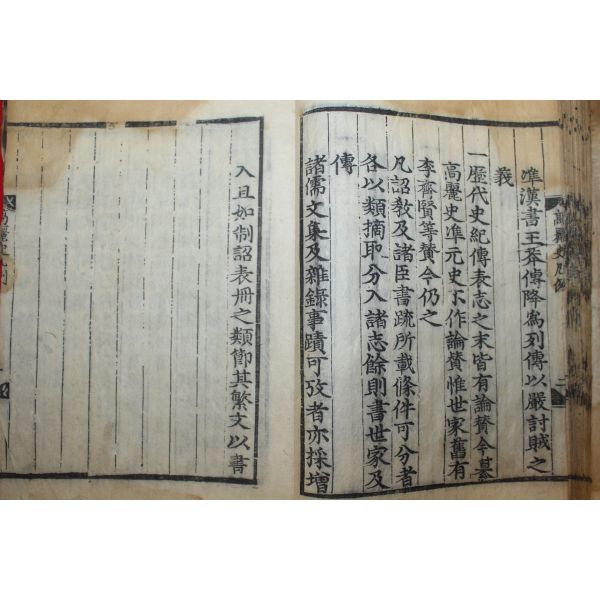 高麗史凡例
二
准漢書王莽傳降爲列傳以嚴討賊之
義
一歷代史紀傳表志之末皆有論贊今纂
高麗史准元史不作論贊惟世家舊有
李齊賢等贊今仍之
凡詔教及諸臣書疏所載條件可分者
各以類摘取分入諸志餘則書世家及
傳
諸儒文集及雜錄事蹟可攷者亦採增
入且如制詔表冊之類節其繁文以書